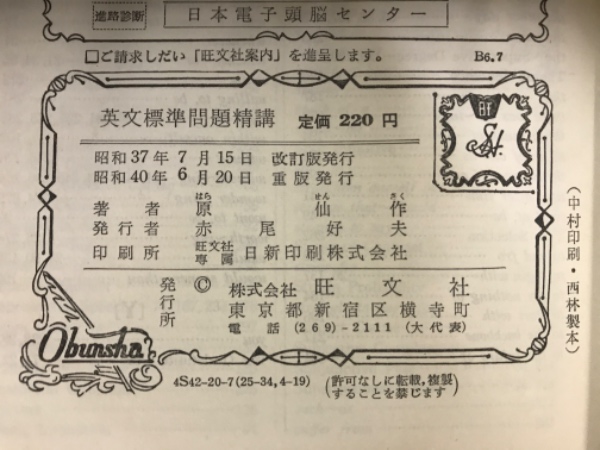 進路診断 日本電子頭脳センター
□ご請求しだい「旺文社案内」を進呈します。 B6.7
英文標準問題精講 定価 220 円
昭和37年 7月15日 改訂版発行
昭和40年 6月20日 重版発行
著者 原仙作
はら せん さく
発行者 赤尾好夫
印刷所 旺文社専属 日新印刷株式会社
発行所 © 株式会社 旺文社
東京都新宿区横寺町
電話 (269)-2111 (大代表)
Obunsha
4S42-20-7(25-34,4-19) (許可なしに転載,複製することを禁じます)
(中村印刷・西林製本)